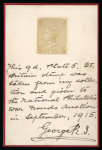 This 9d. Plate 5. Gt.
Britain stamp was
taken from my collec-
tion and given to
the National Philatelic
War Funds Auction
in September, 1915.
George R.I.